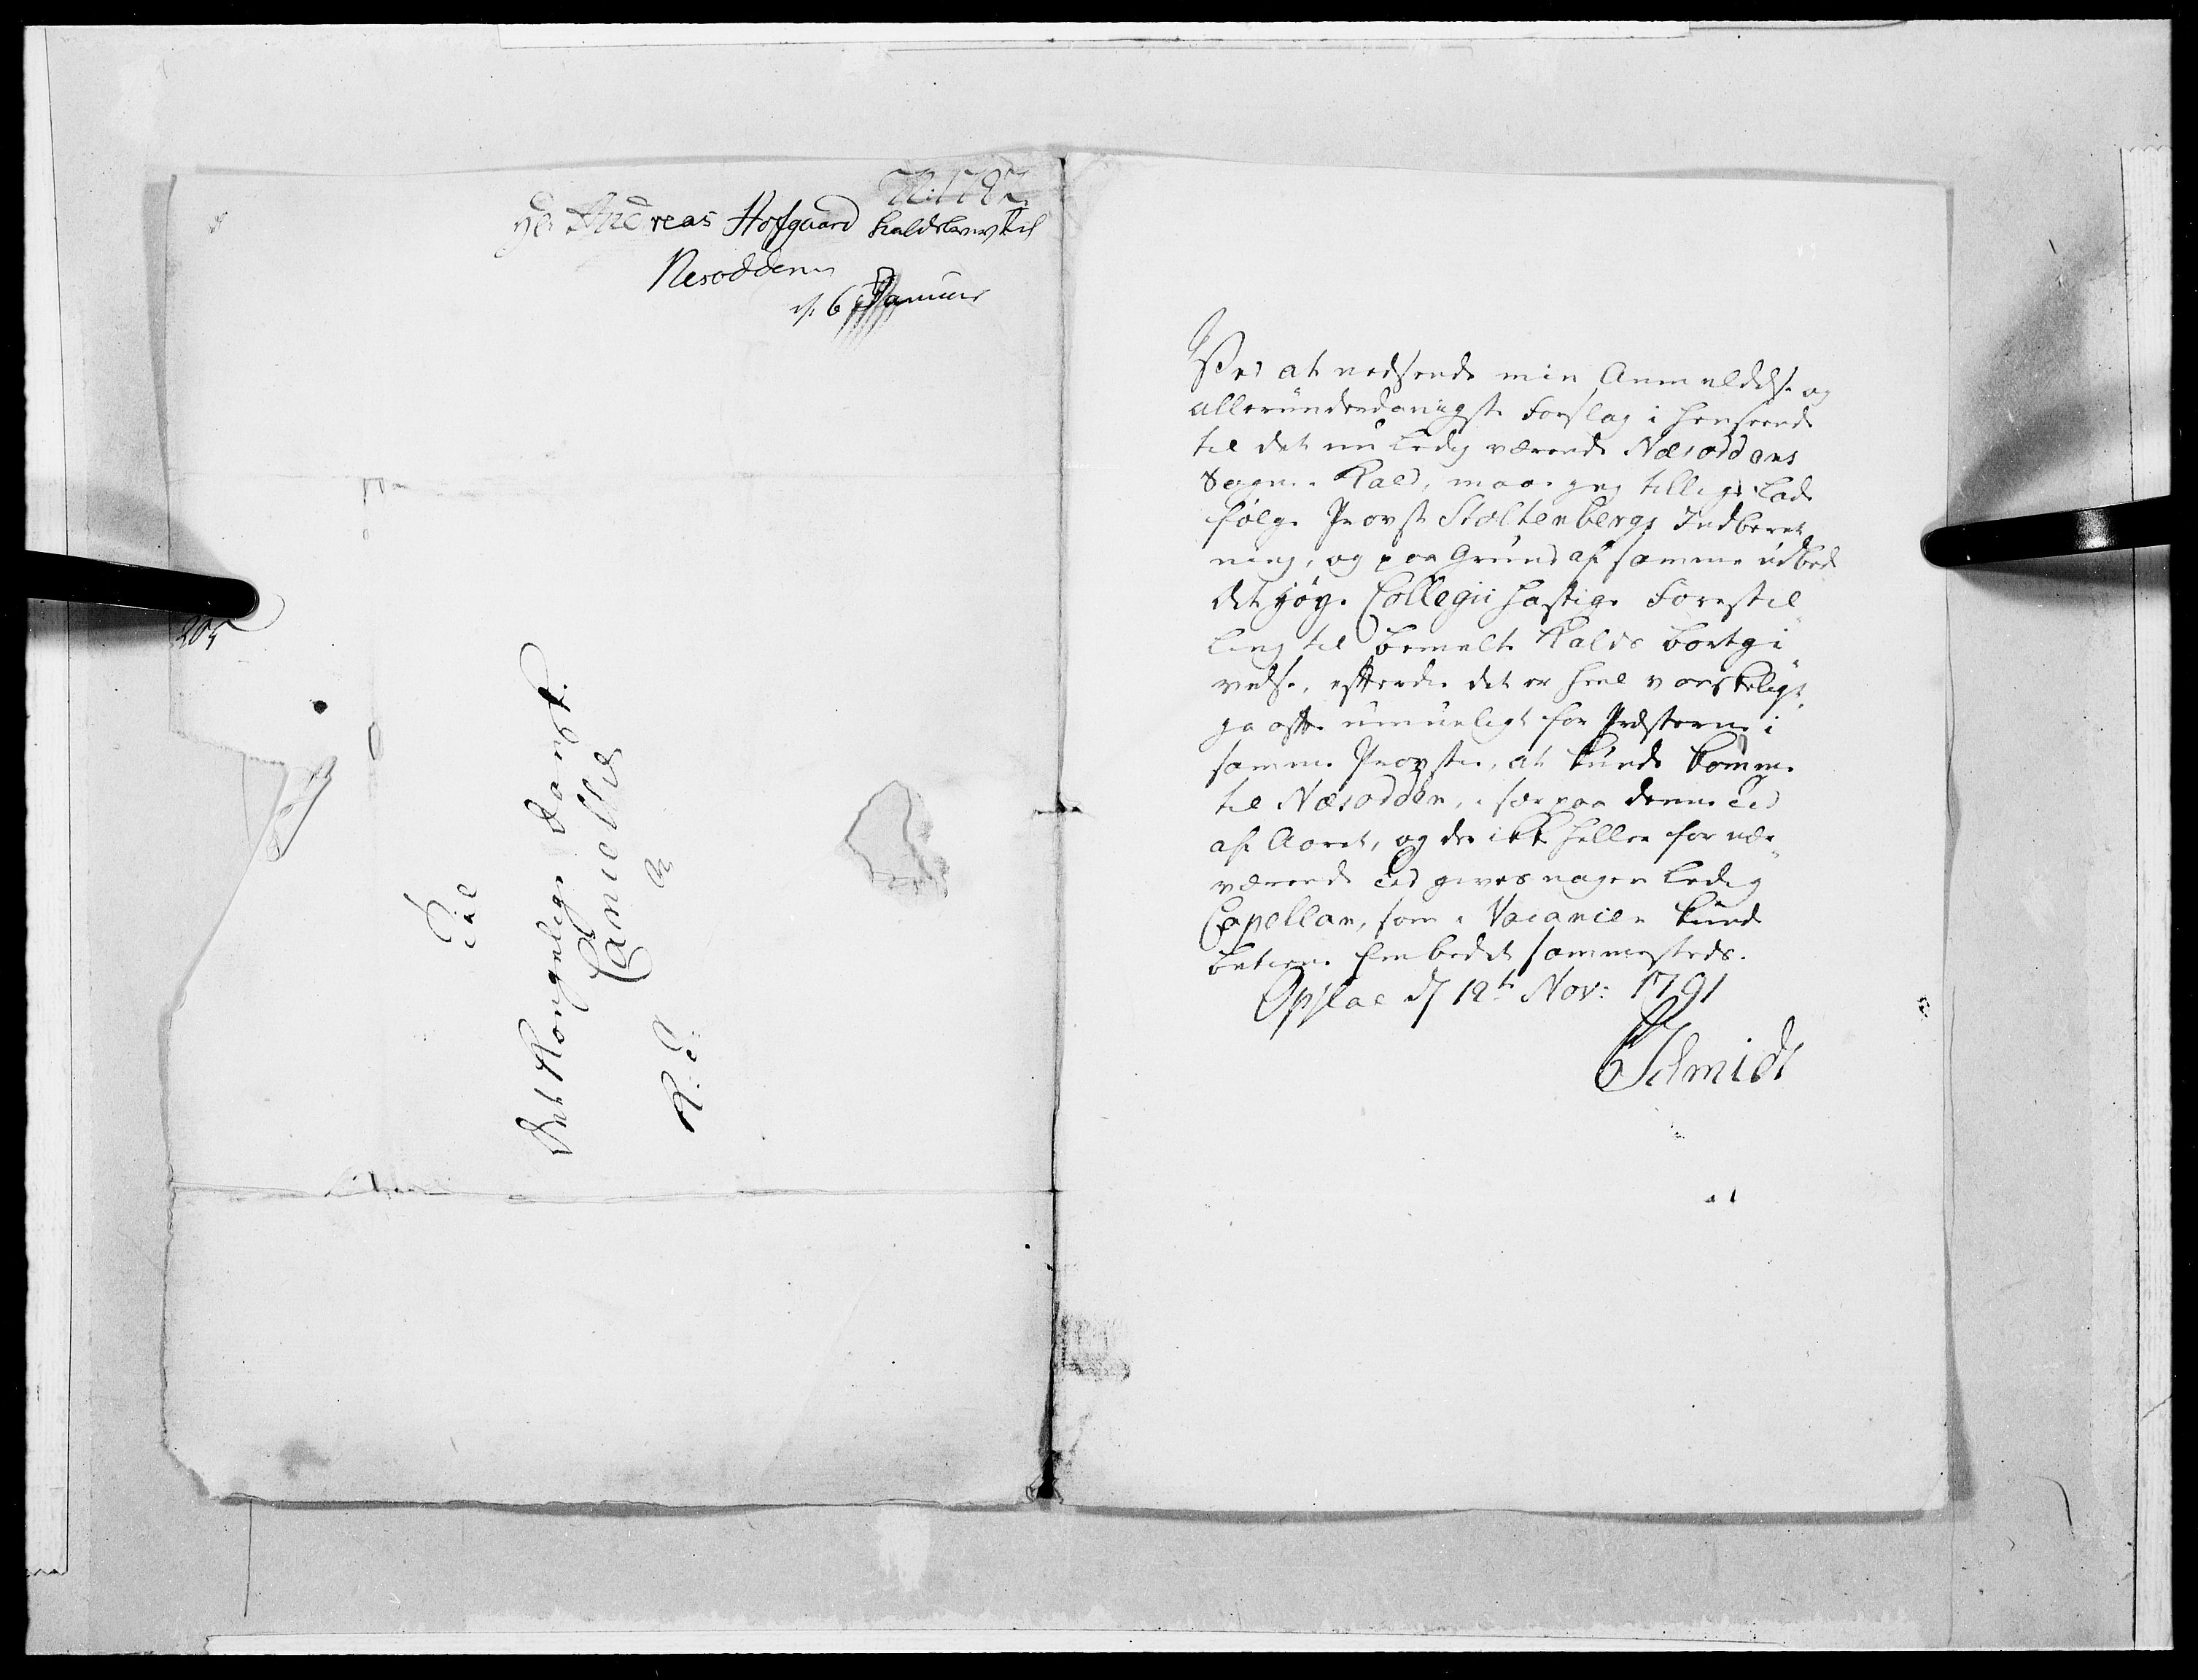 Hr. Andreas Hofgaard Kaldsbrev til
Nesodden
d. 6 Januar
205
Til
Det Kongelige Danske
Cancellie
R: T:
Ved at nedsende min Anmeldelse og
allerunderdanigste Forslag i Henseende
til det nu ledig værende Næsoddens
Sogne-Kald, maae jeg tillige lade
følge Provst Stoltenbergs Indberet
ning, og paa Grund af samme udbede
det høye Collegii hastige Forestil
ling til bemelte Kalds bortgi
velse, efterdi det er heel vanskeligt,
ja ofte umueligt for Præsterne i
samme Provstie, at kunde komme
til Næsodden, i sær paa denne Tid
af Aaret, og der ikke heller for nær
værende Tid gives nogen ledig
Capellan, som i Vacancen kunde
betiene Embedet sammesteds.
Opsloe d 12te Nov: 1791
Schmidt